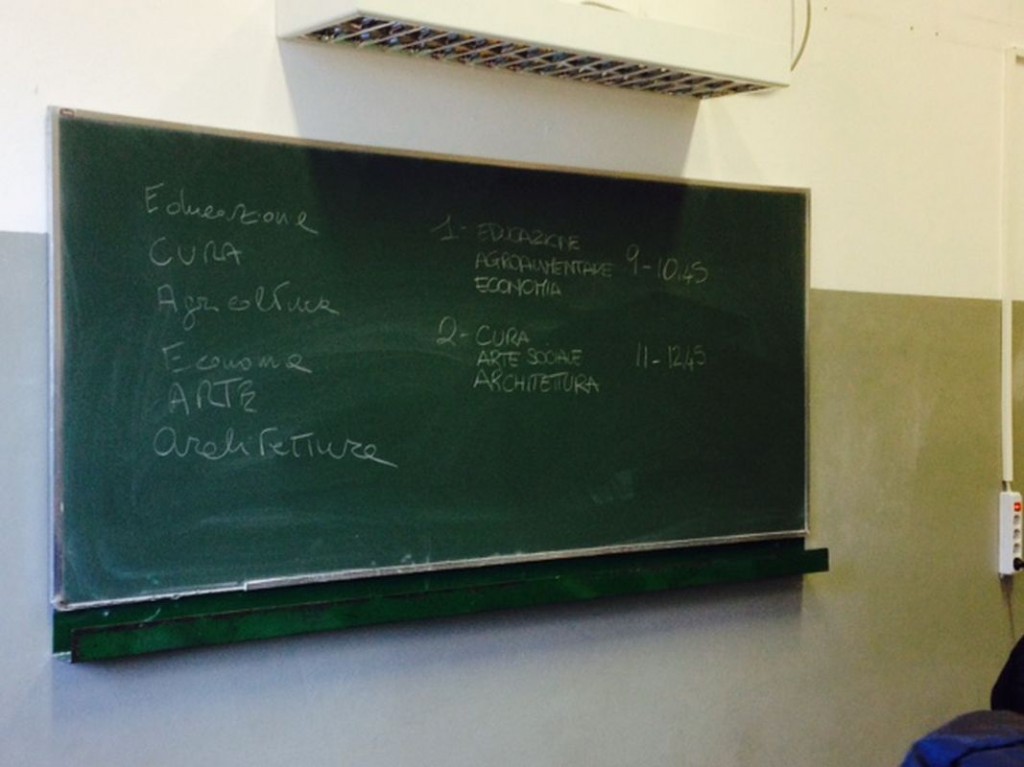 Educazione
CURA
Agricoltura
Economia
ARTE
Architettura
1- EDUCAZIONE
AGROALIMENTARE 9-10.45
ECONOMIA
2- CURA
ARTE SOCIALE 11-12.45
ARCHITETTURA